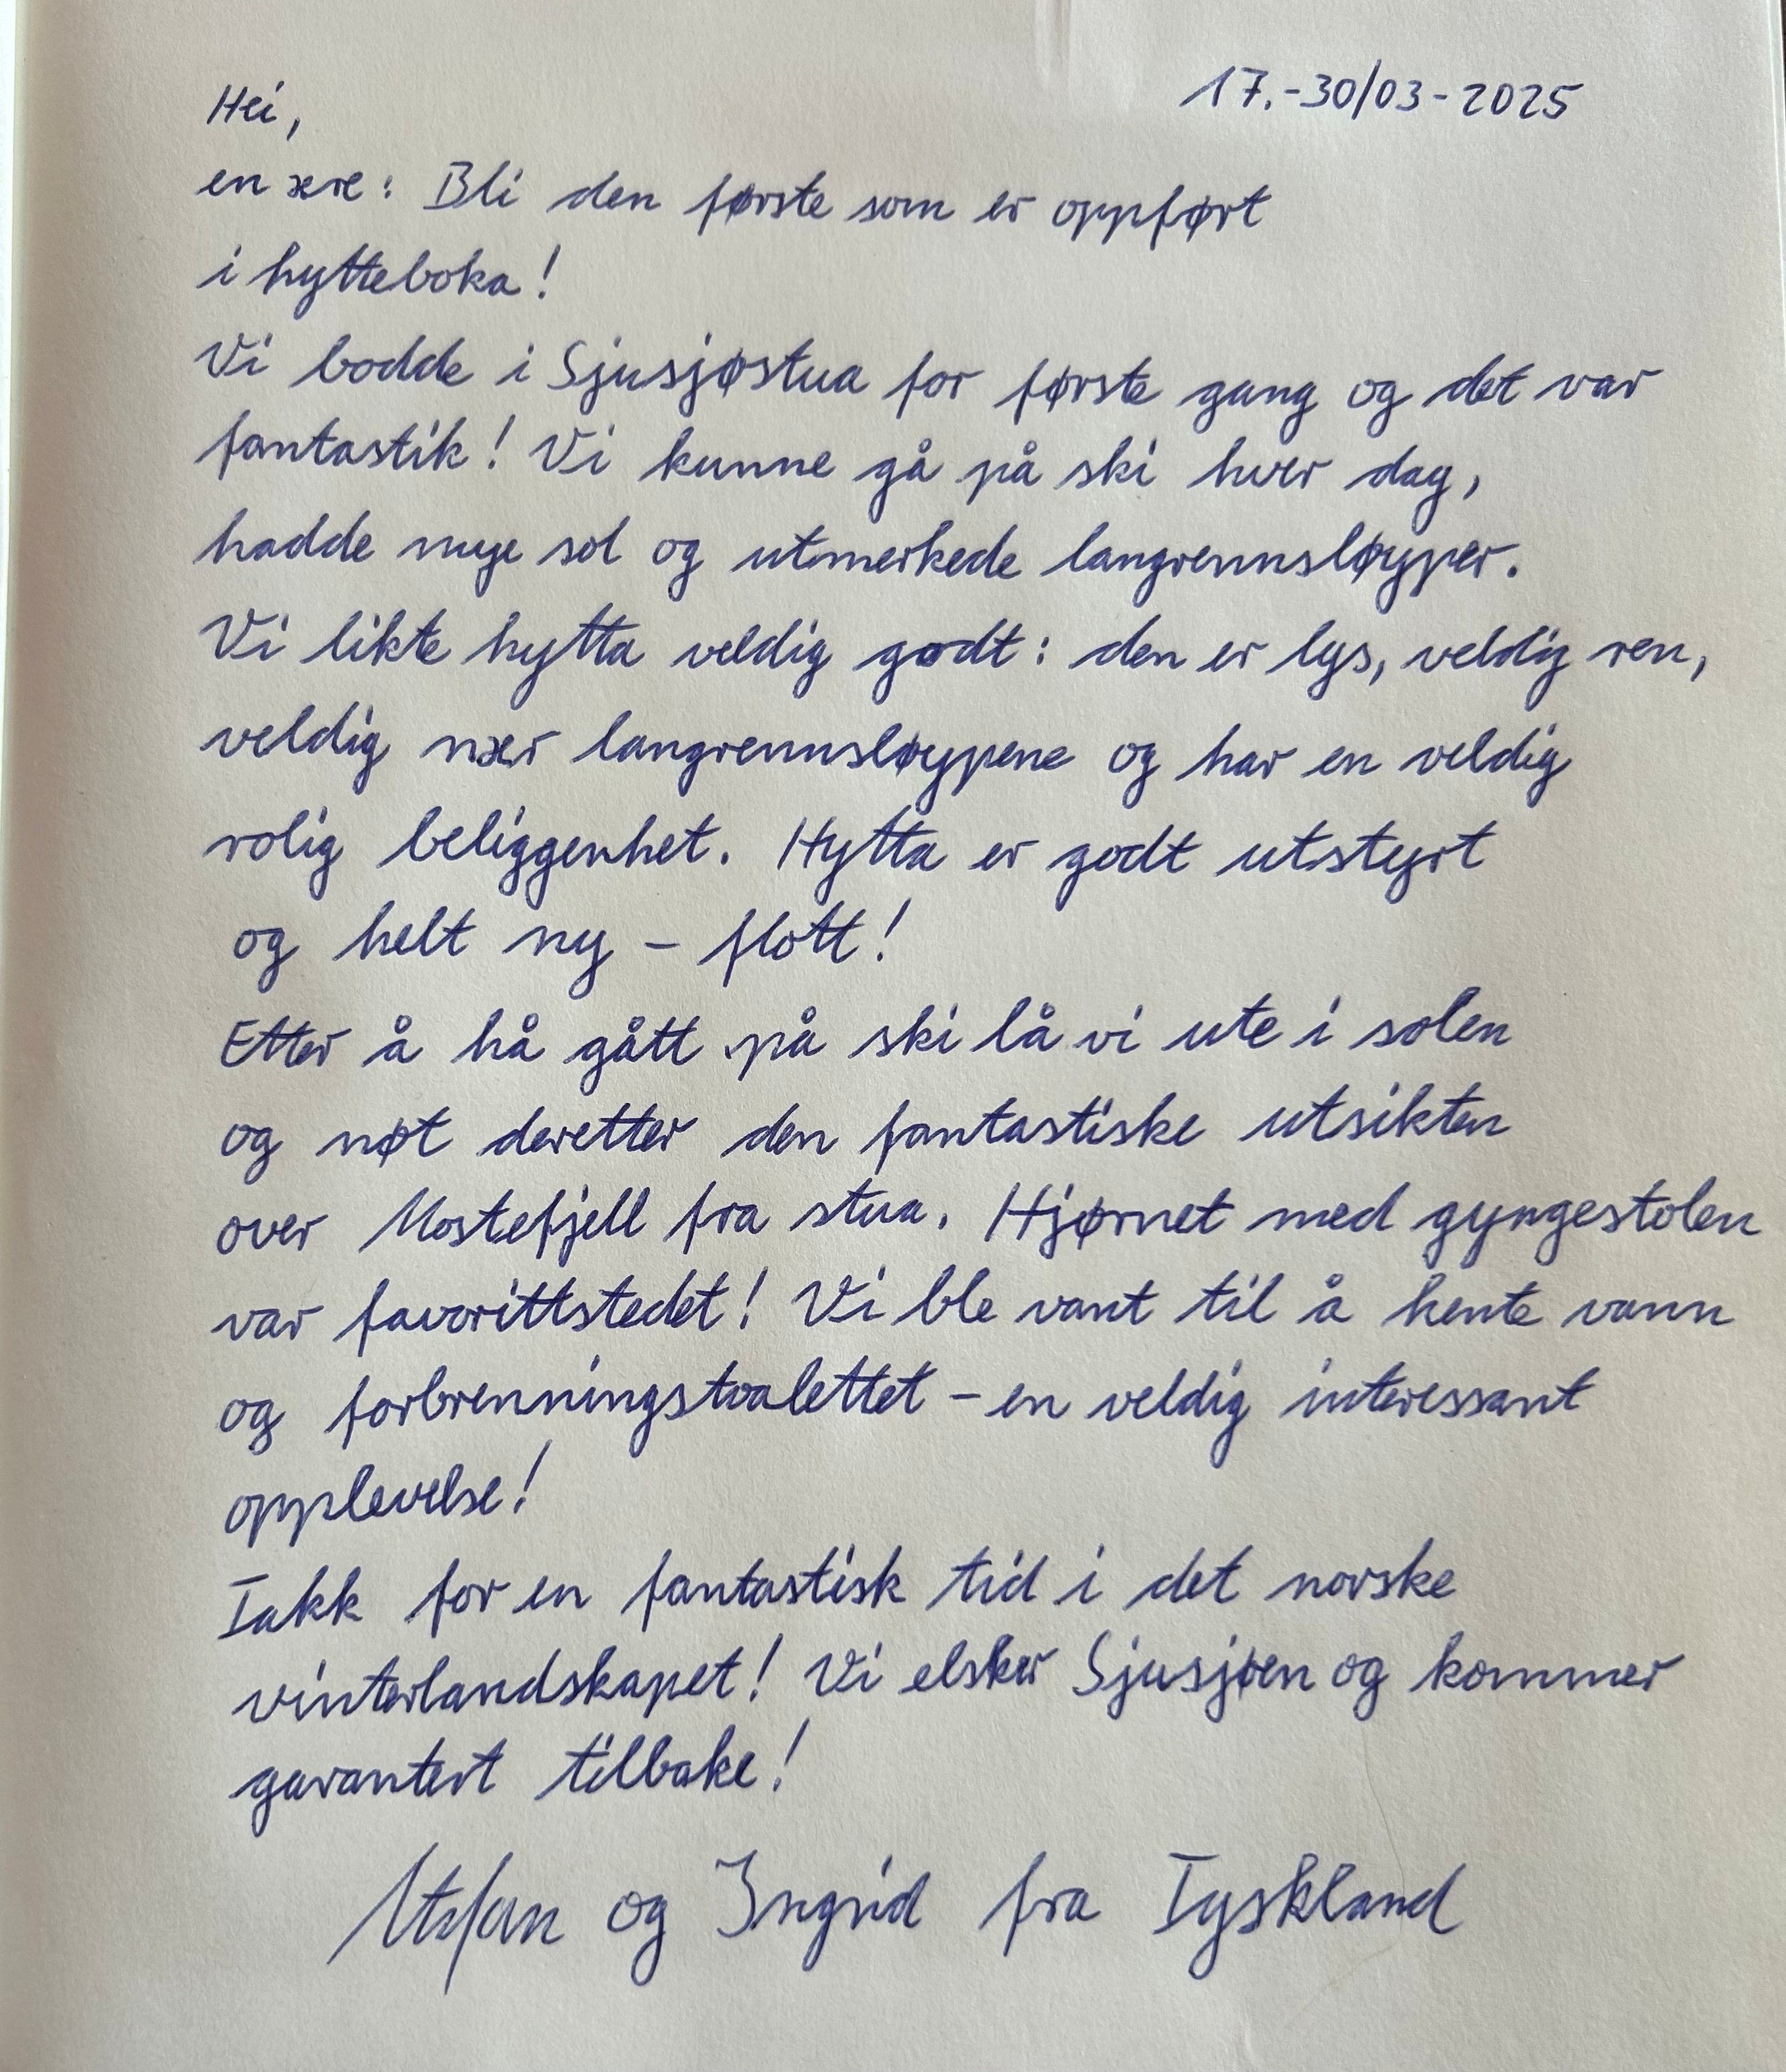 17.-30/03-2025
Hei,
en ære: Bli den første som er oppført
i hytteboka!
Vi bodde i Sjusjøstua for første gang og det var
fantastik! Vi kunne gå på ski hver dag,
hadde mye sol og utmerkede langrennsløyper.
Vi likte hytta veldig godt: den er lys, veldig ren,
veldig nær langrennsløypene og har en veldig
rolig beliggenhet. Hytta er godt utstyrt
og helt ny - flott!
Etter å hå gått på ski lå vi ute i solen
og nøt deretter den fantastiske utsikten
over Mostefjell fra stua. Hjørnet med gyngestolen
var favorittstedet! Vi ble vant til å hente vann
og forbrenningstoalettet - en veldig interessant
opplevelse!
Takk for en fantastisk tid i det norske
vinterlandskapet! Vi elsker Sjusjøen og kommer
garantert tilbake!
Stefan og Ingrid fra Tyskland